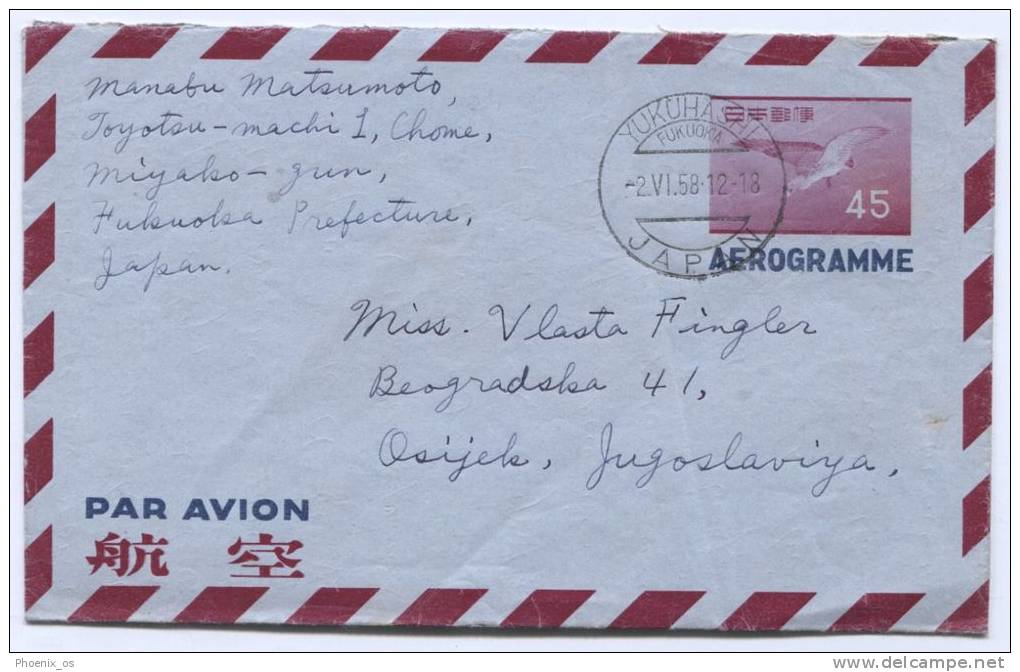 Manabu Matsumoto,
Toyotsu-machi 1, Chome,
Miyako-gun,
Fukuoka Prefecture,
Japan.
YUKUHASHI
FUKUOKA
-2.VI.58.12-18
JAPAN
日本郵便
45
AEROGRAMME
Miss. Vlasta Fingler
Beogradska 41,
Osijek, Jugoslaviya,
PAR AVION
航空
Phoenix_os
delcampe.net